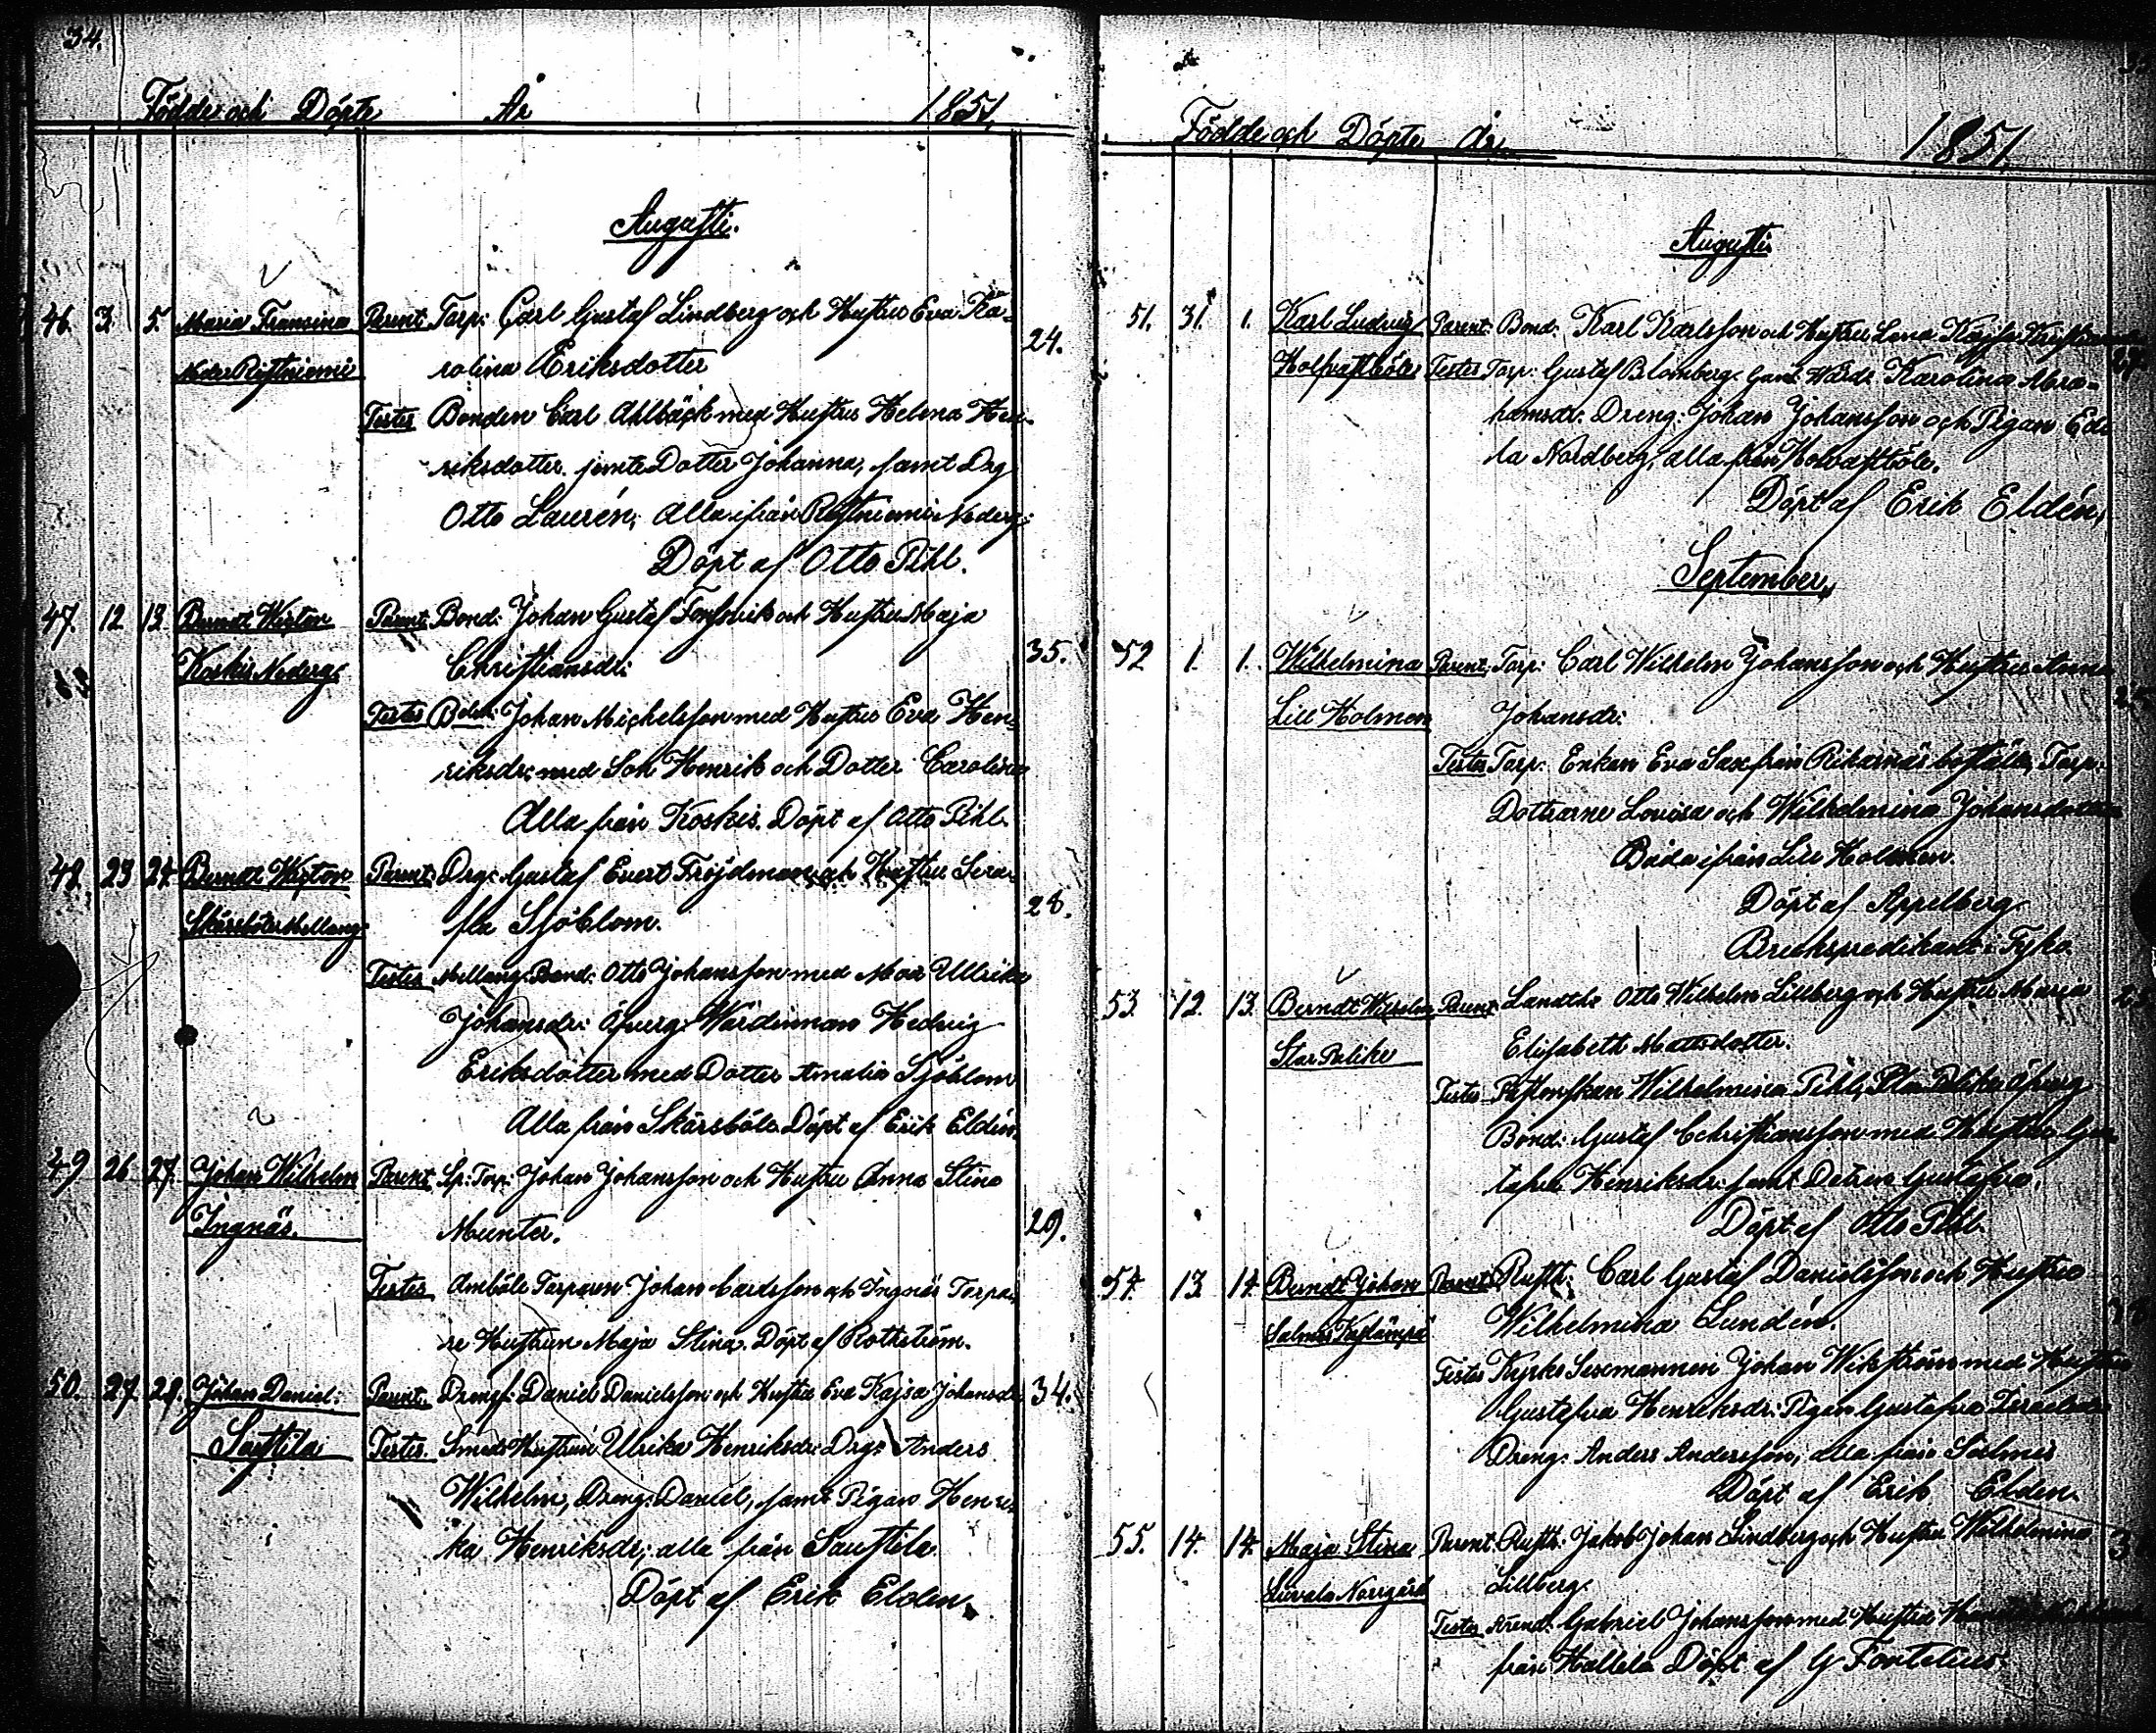 34.
Födde och Döpte År 1851.
Augusti.
46. 3. 5. Maria Fransina Parent: Torp: Carl Gustaf Lindberg och Hustru Eva Ka-
Neder Ristniemi rolina Eriksdotter 24.
Testes Bonden Carl Ahlbäck med Hustru Helena Hen-
riksdotter. jemte Dotter Johanna, samt Drg
Otto Laurén, Alla ifrån Ristniemi Nederg:
Döpt af Otto Pihl.
47. 12 13 Berndt Wictor Parent: Bond: Johan Gustaf Forsvik och Hustru Maja
Koskis Nederg: Christiansdr: 35.
Testes Johan Michelsson med Hustru Eva Hen-
riksdr: med Son Henrik och Dotter Carolina
Alla från Koskis. Döpt af Otto Pihl.
48. 23 24. Berndt Wictor Parent: Drg: Gustaf Evert Fröjdman och Hustru Sera-
Skärsböle Mellang: fia Sjöblom. 28.
Testes Mellang: Bond: Otto Johansson med Mor Ullrika
Johansdr: Öfverg: Wärdinnan Hedvig
Eriksdotter med Dotter Amalia Sjöblom
Alla från Skärsböle. Döpt af Erik Eldén.
49 26 27. Johan Wilhelm Parent Sp: Torp: Johan Johansson och Hustru Anna Stina
Ingnäs. Munter. 29.
Testes Amböle Torparen Johan Carlsson och Ingnäs Torpa-
re Hustrun Maja Stina. Döpt af Rothström.
50. 27. 28. Johan Daniel: Parent. Drengs: Daniel Danielsson och Hustru Eva Kajsa Johansdr 34.
Sauttila Testes Smeds Hustrun Ulrika Henriksdr: Drg: Anders
Wilhelm, Dreng: Daniel, samt Pigan Henri-
ka Henriksdr; alla från Sauttila.
Döpt af Erik Elden.
Födde och Döpte År 1851
Augusti
51. 31. 1. Karl Ludvig Parent: Bond: Karl Karlsson och Hustru Lena Kajsa
Holfvastböle Testes Torp: Gustaf Blomberg. Karolina Abra-
hamsdr: Dreng: Johan Johansson och Pigan Edi
la Nordberg, alla från Holvastböle.
Döpt af Erik Eldén.
September,
52 1. 1. Wilhelmina Parent: Torp: Carl Wilhelm Johansson och Hustru Anna
Lill Holmen Johansdr:
Testes Torp: Enkan Eva Sax från boställe, Torp:
Dottrarne Lovisa och Wilhelmina Johansdotter
Båda ifrån Lill Holmen.
Döpt af Appelberg
Bruckspredikant i Tyko.
53. 12. 13. Berndt Wilhelm Parent: Otto Wilhelm Lillberg och Hustru Maria
Stor Pelike Elisabeth Mattsdotter.
Testes Pastorskan Wilhelmina Pihl,
Bond: Gustaf Christiansson med Hustru Gus
tafva Henriksdr: samt Gustafva.
Döpt af Otto Pihl
54. 13. 14. Berndt Johan Parent: Rusth: Carl Gustaf Danielsson och Hustru
Salmis Wilhelmina Lundén.
Testes Kyrko Sexmannen Johan Wikström med Hustru
Gustafva Henriksdr: Pigan Gustafva Israelsdr
Dreng: Anders Andersson, alla från Salmis
Döpt af Erik Elden.
55. 14. 14. Maja Stina Parent: Rusth: Jakob Johan Lindberg och Hustru Wilhelmina
Norrgård Lillberg.
Testes Arend: Gabriel Johansson med Hustru
från Hallela Döpt af G Fontelius.